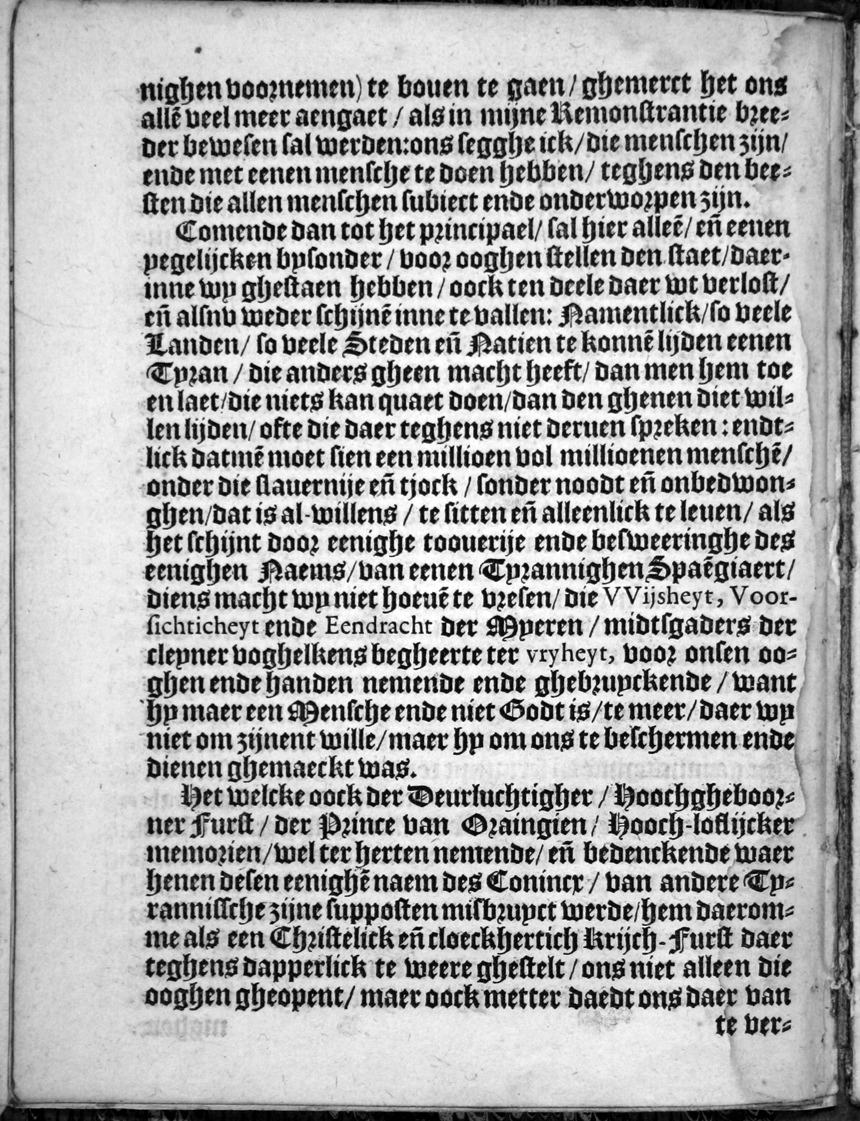 nighen voornemen) te bouen te gaen/ ghemerct het ons
allē veel meer aengaet / als in mijne Remonstrantie bree⸗
der bewesen sal werden:ons segghe ick/die menschen zijn/
ende met eenen mensche te doen hebben/ teghens den bee⸗
sten die allen menschen subiect ende onderworpen zijn.
Comende dan tot het principael/ sal hier alleē/ eñ eenen
yegelijcken bysonder / voor ooghen stellen den staet/daer-
inne wy ghestaen hebben / oock ten deele daer wt verlost/
eñ alsnv weder schijnē inne te vallen: Namentlick/so veele
Landen/ so veele Steden eñ Natien te konnē lijden eenen
Tyran / die anders gheen macht heeft/ dan men hem toe
en laet/die niets kan quaet doen/dan den ghenen diet wil⸗
len lijden/ ofte die daer teghens niet deruen spreken : endt⸗
lick datmē moet sien een millioen vol millioenen menschē/
onder die slauernije eñ tjock / sonder noodt eñ onbedwon⸗
ghen/dat is al-willens / te sitten eñ alleenlick te leuen/ als
het schijnt door eenighe toouerije ende besweeringhe des
eenighen Naems/van eenen Tyrannighen Spaēgiaert/
diens macht wy niet hoeuē te vresen/ die VVijsheyt, Voor-
sichticheyt ende Eendracht der Myeren / midtsgaders der
cleyner voghelkens begheerte ter vryheyt, voor onsen oo⸗
ghen ende handen nemende ende ghebruyckende / want
hy maer een Mensche ende niet Godt is/te meer/daer wy
niet om zijnent wille/maer hy om ons te beschermen ende
dienen ghemaeckt was.
Het welcke oock der Deurluchtigher / Hoochgheboor⸗
ner Furst / der Prince van Oraingien/ Hooch-loflijcker
memorien/wel ter herten nemende/ eñ bedenckende waer
henen desen eenighē naem des Conincx / van andere Ty⸗
rannissche zijne supposten misbruyct werde/hem daerom⸗
me als een Christelick eñ cloeckhertich Krijch-Furst daer
teghens dapperlick te weere ghestelt / ons niet alleen die
ooghen gheopent/ maer oock metter daedt ons daer van
te ver⸗